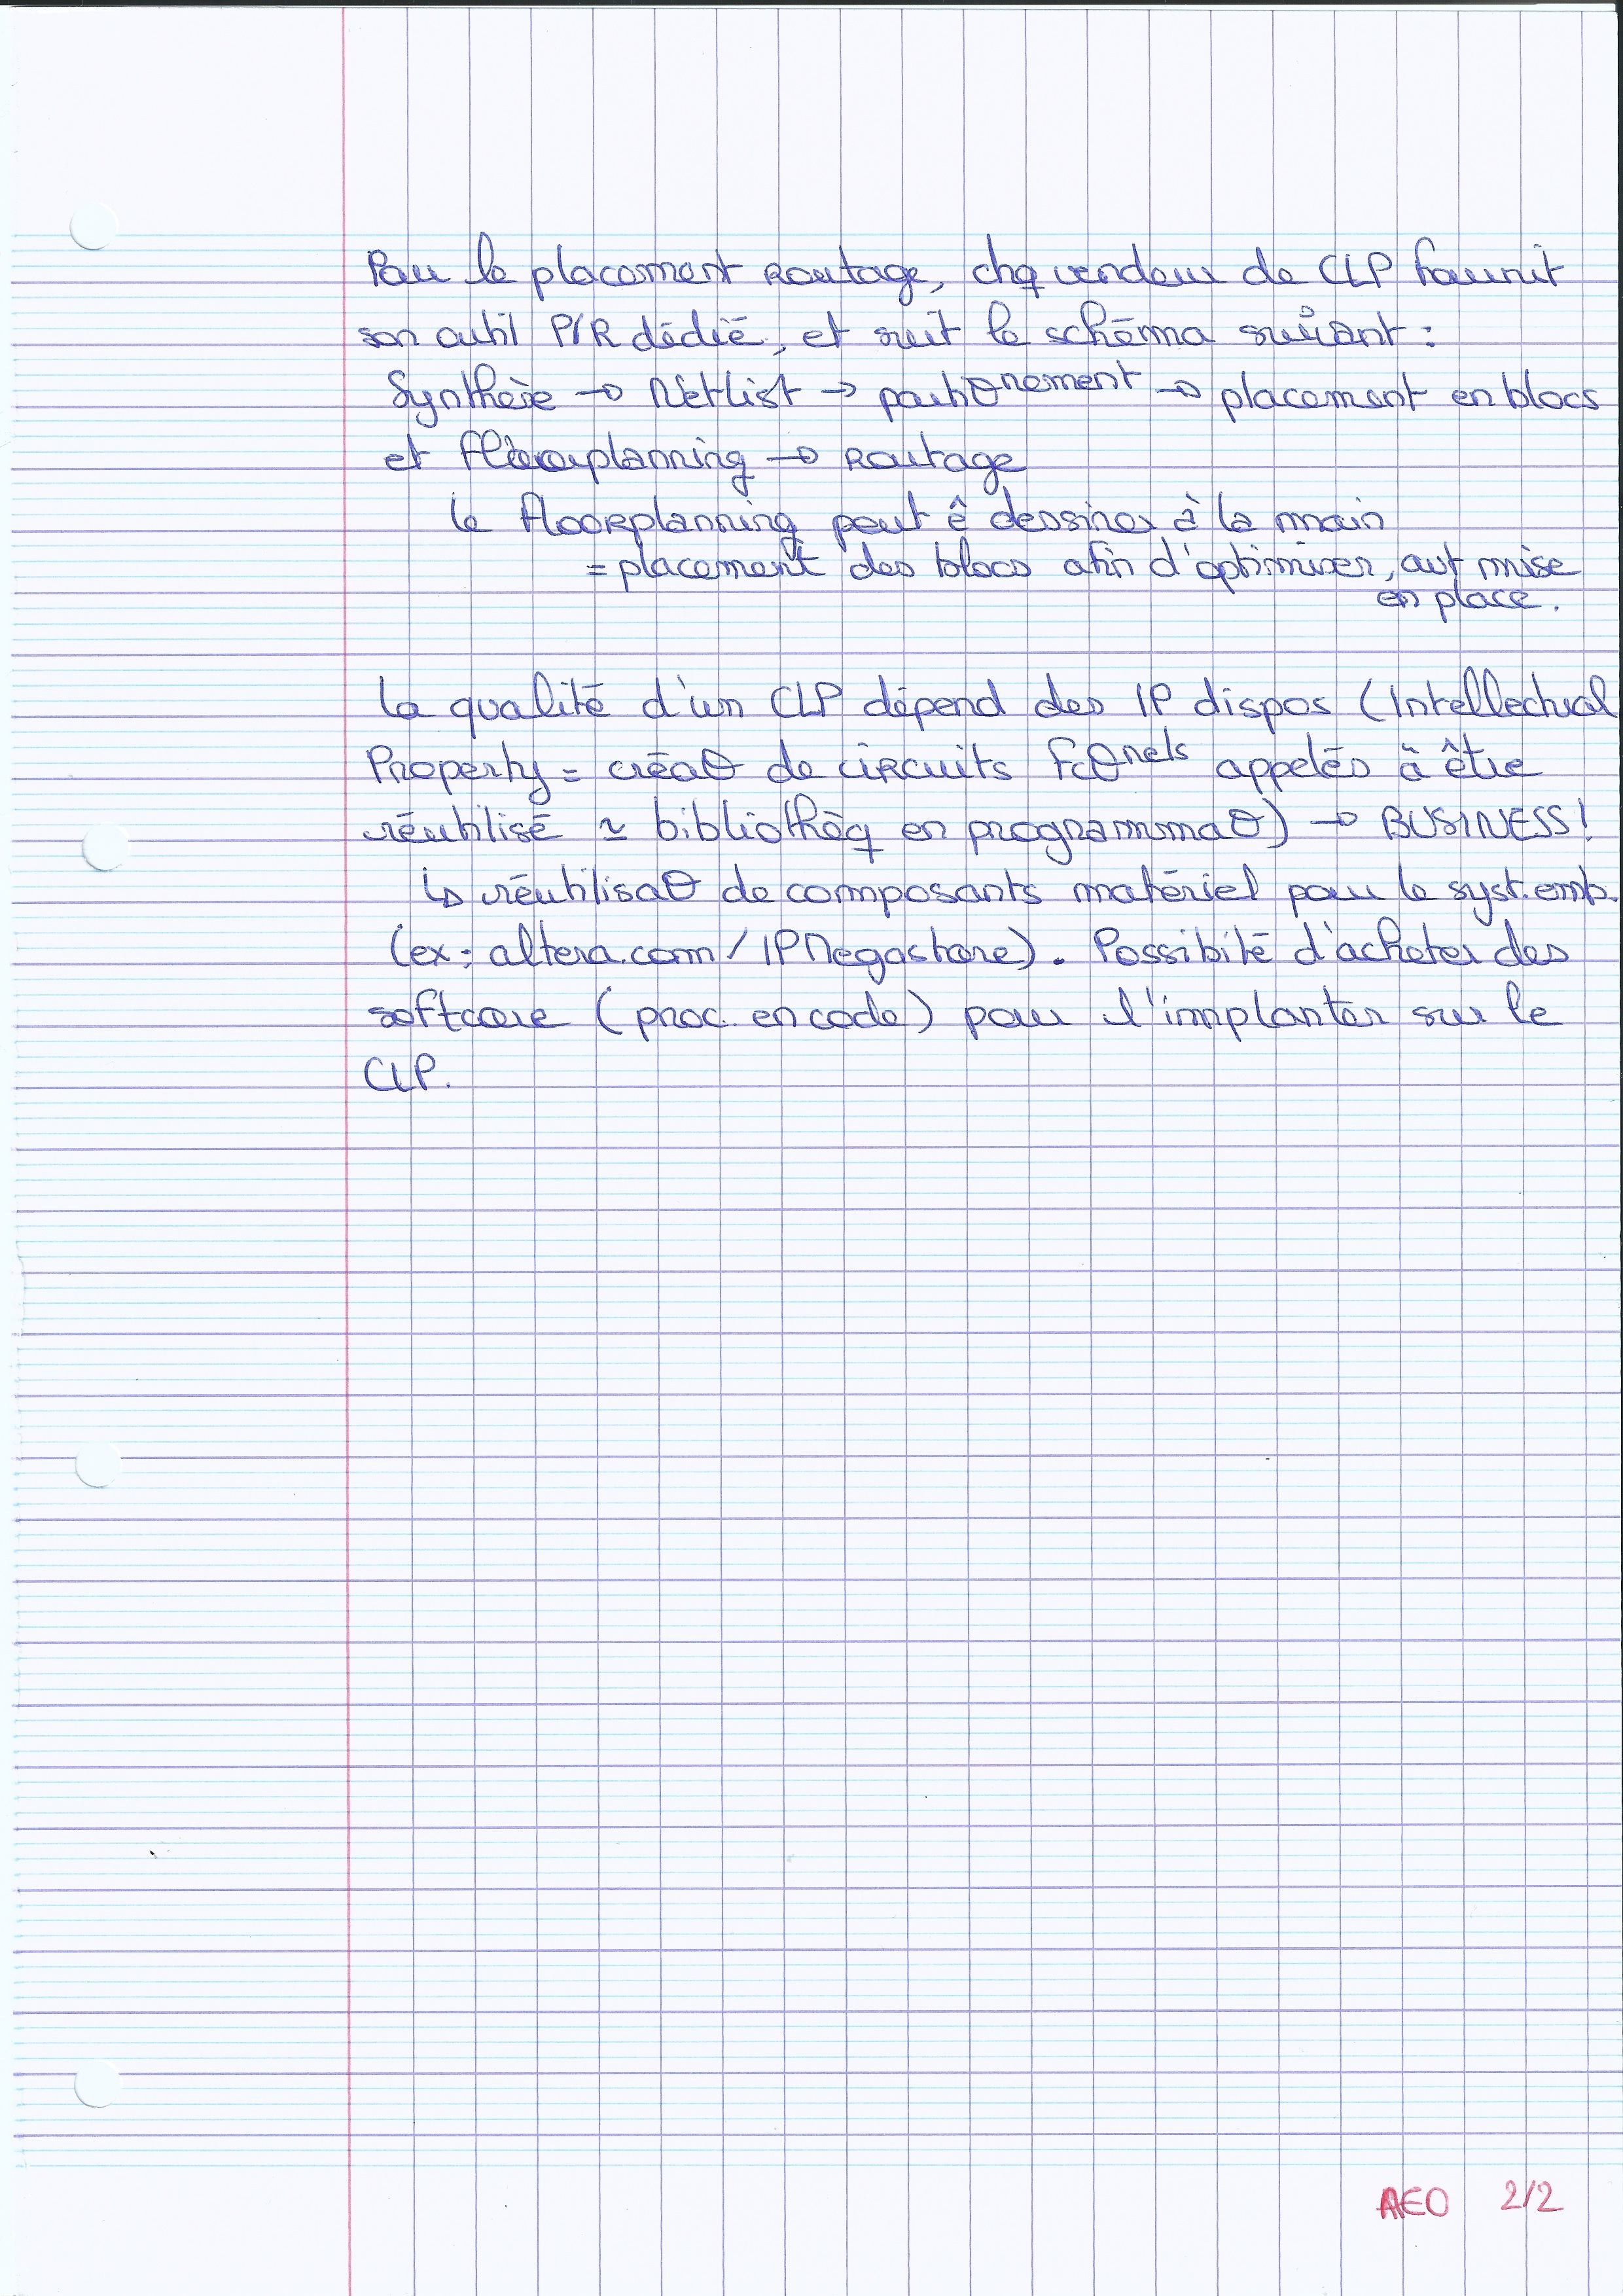 Pour le placement Routage, chq vendeur de CLP fournit
son outil P/R dédié, et suit le schéma suivant :
Synthèse → Netlist → partiθnement → placement en blocs
et floorplanning → Routage
le flooRplanning peut ê dessiner à la main
= placement des blocs afin d'optimiser, aut mise
en place.
La qualité d'un CLP dépend des IP dispos (Intellectual
Property = créaθ de ciRcuits fcθnels appelés à être
réutilisé ≃ bibliothèq en programmaθ) → BUSINESS !
↳ réutilisaθ de composants matériel pour le syst. emb.
(ex : altera.com / IPMegastore). Possibité d'acheter des
softcore (proc. en code) pour l'implanter sur le
CLP.
AEO 2/2